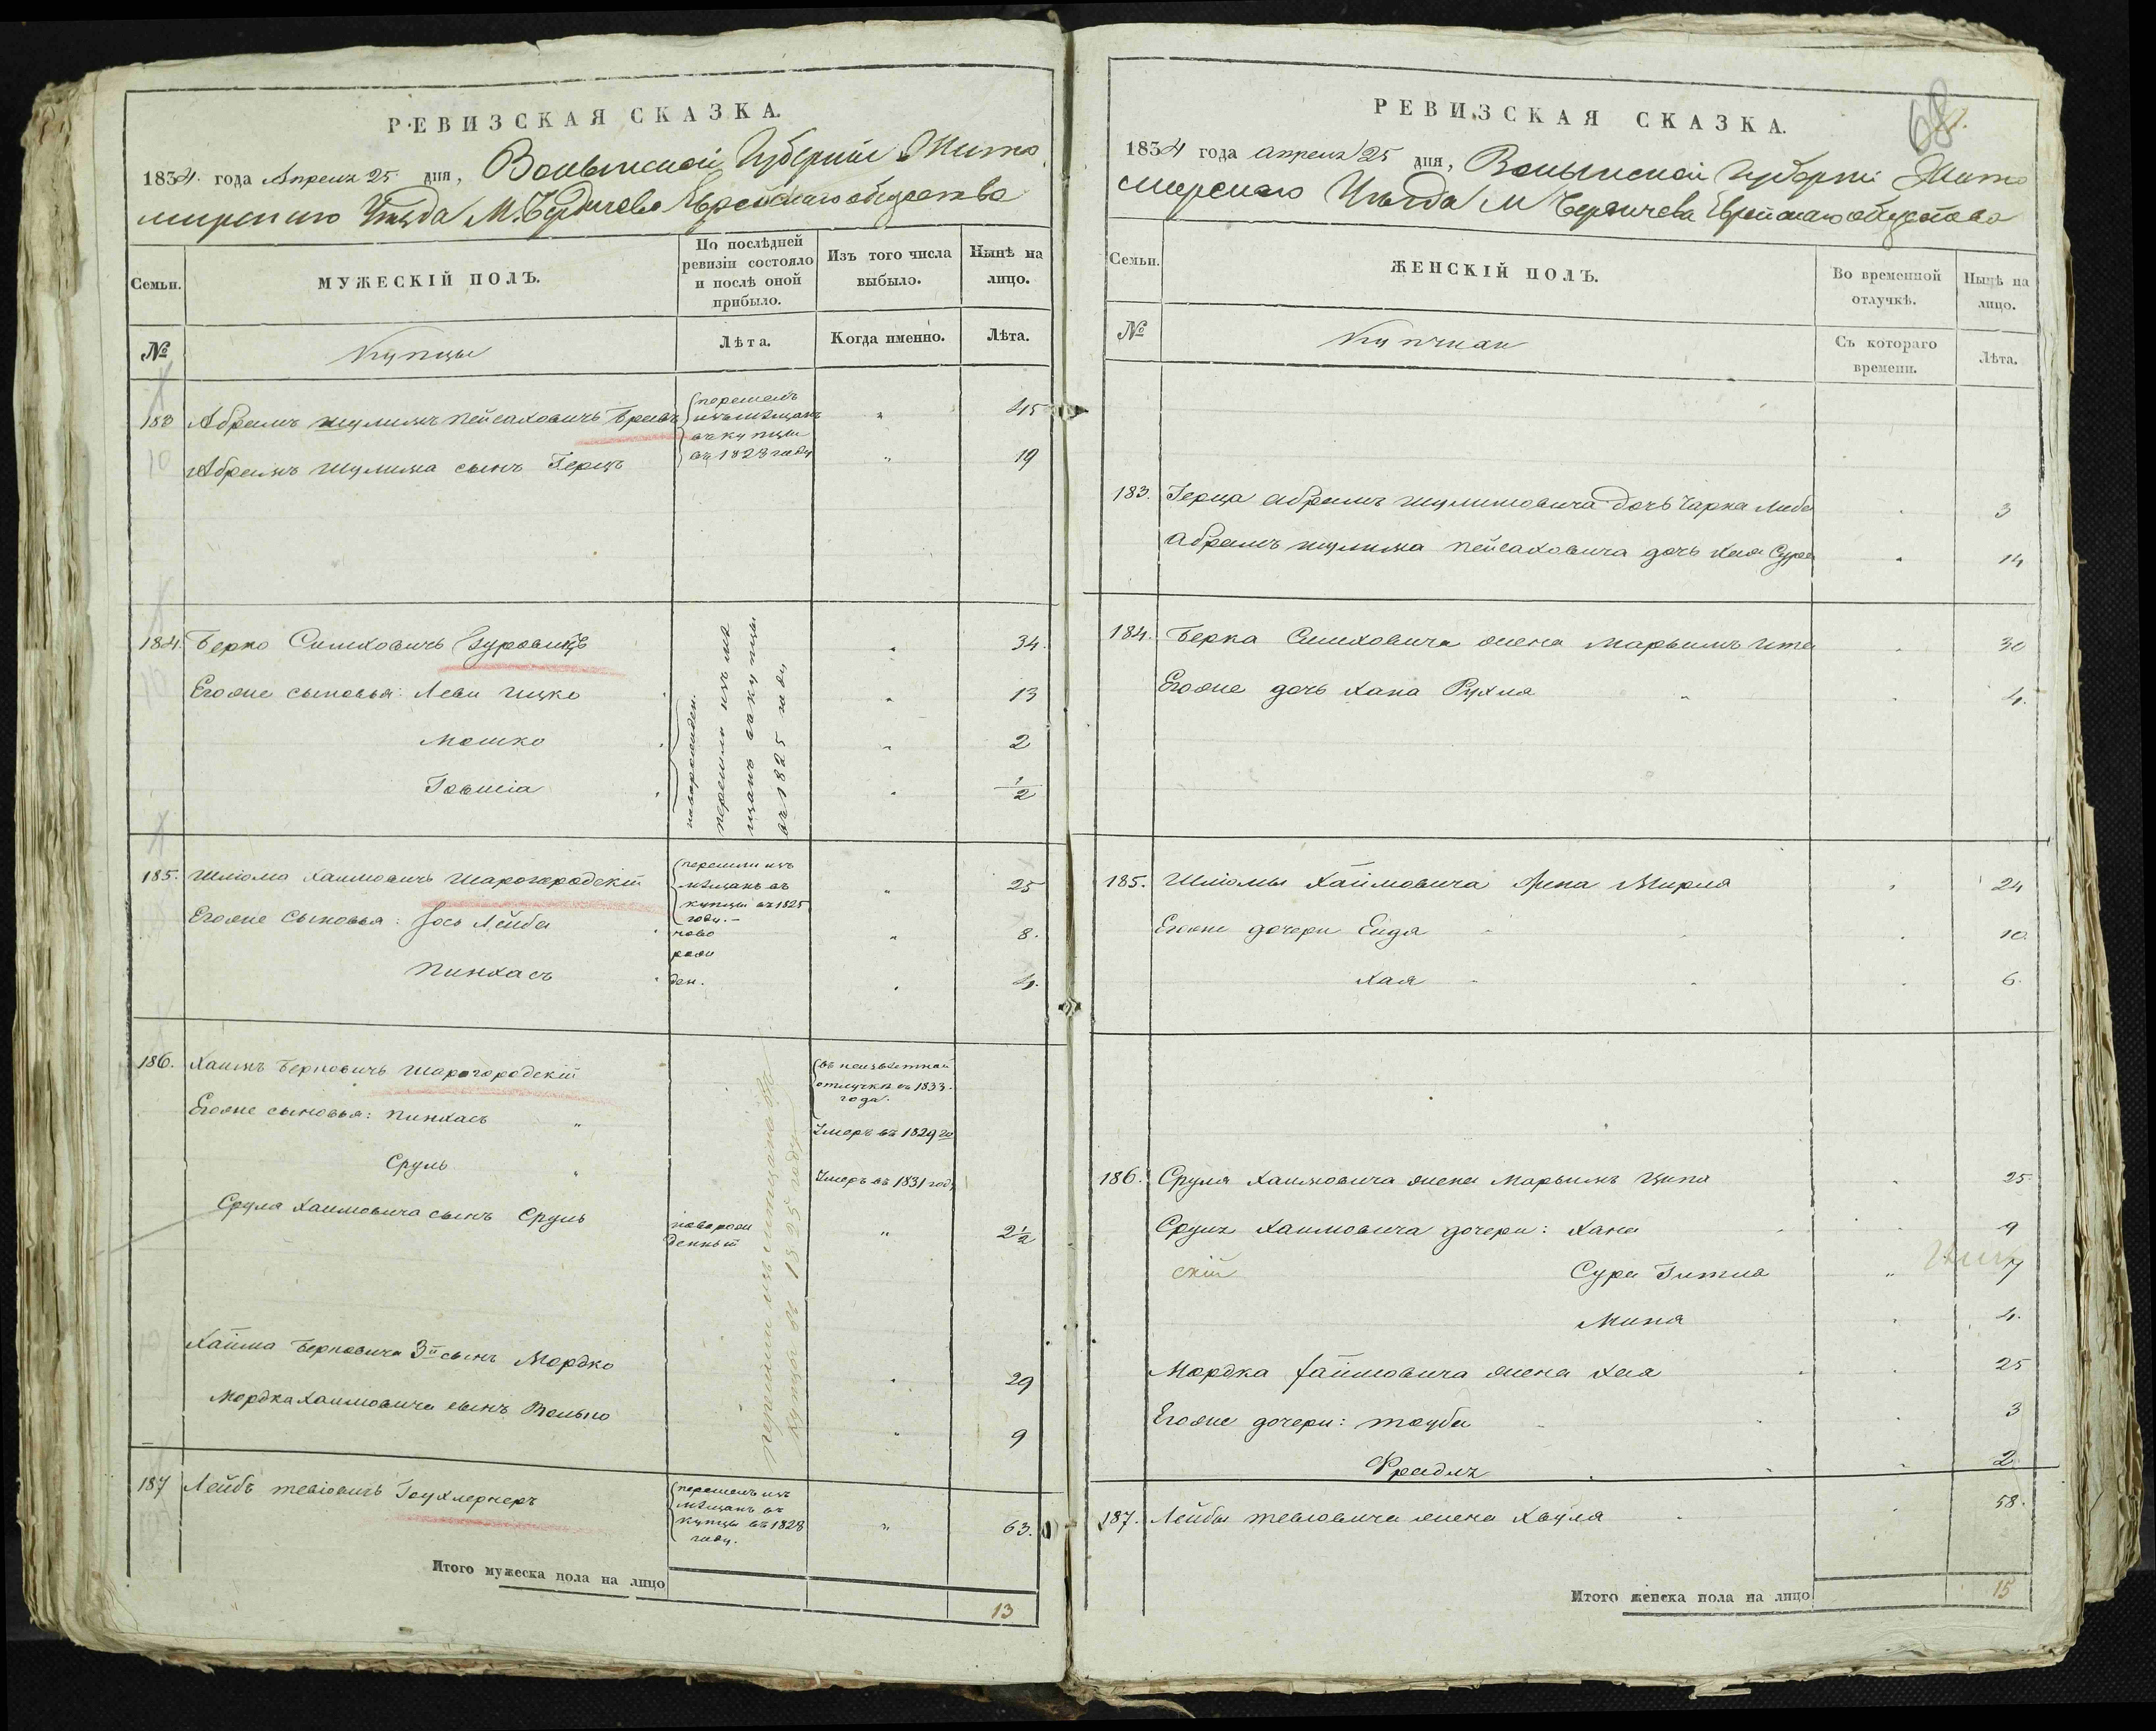 РЕВИЗСКАЯ СКАЗКА.
1834 года Апреля 25 дня, Волынской Губернии Жито
мирскаго Уезда М. Бердичева Еврейскаго общества
Семьи. МУЖЕСКІЙ ПОЛЪ. По послѣдней ревизіи состояло и послѣ оной прибыло. Изъ того числа выбыло. Нынѣ на лицо.
№ Купцы Лѣта. Когда именно. Лѣта.
183 Абрамъ Шулимъ Пейсаховичъ перешелъ изъ мѣщанъ въ купцы въ 1828 году " 45
Абрамъ Шулима сынъ Герцъ " 19
184. Берко Симховичъ Гуровицъ перешли изъ мѣщанъ въ купцы въ 1825 году " 34.
Егоже сыновья: Леви Ицко " 13
Мошко новорожден. " 2
Іовшіа " 1/2
185. Шліома Хаимовичъ Шарогородскій перешли изъ мѣщанъ въ купцы въ 1825 году. " 25
Егоже сыновья: Іось Лейба новорожден. " 8.
Пинхасъ " 4.
186. Хаимъ Берковичъ Шарогородскій въ неизвѣстной отлучкѣ въ 1833. года.
Егоже сыновья: Пинхасъ " Умеръ въ 1829 го
Сруль " Умеръ въ 1831 году
Срула Хаимовича сынъ Сруль новорожденный " 2 1/2
перешли изъ мѣщанъ въ купцы въ 1825 году
Хаима Берковича 3й сынъ Мордко " 29
Мордка Хаимовича сынъ Волько " 9
187 Лейбъ Тевіовичъ Гоухлернеръ перешелъ изъ мѣщанъ въ купцы въ 1828 году. " 63.
Итого мужеска пола на лицо 13
68
РЕВИЗСКАЯ СКАЗКА.
1834 года Апреля 25 дня, Волынской Губерніи Жито
мирскаго Уѣзда М Бердичева Еврейскаго общества
Семьи. ЖЕНСКІЙ ПОЛЪ. Во временной отлучкѣ. Нынѣ на лицо.
№ Съ котораго времени. Лѣта.
183. Герца Абрамъ Шулимовича дочь Чарна Либа 3
Абрамъ Шулима Пейсаховича дочь Хая Сура 14
184. Берка Симховича жена Марьимъ Ита 30
Егоже дочь Хана Рухля 4.
185. Шліомы Хаимовича жена Мирля 24
Егоже дочери Енда 10
Хая 6.
186. Сруля Хаимовича жена Марьимъ Ципа 25
Сруля Хаимовича дочери: Хана 9
скій Сура Гитля " 7
Миня 4.
Мордка Хаимовича жена Хая 25
Егоже дочери: Тауба 3
Фрадля 2
187. Лейбы Тевіовича жена Хвуля 58.
Итого женска пола на лицо 15